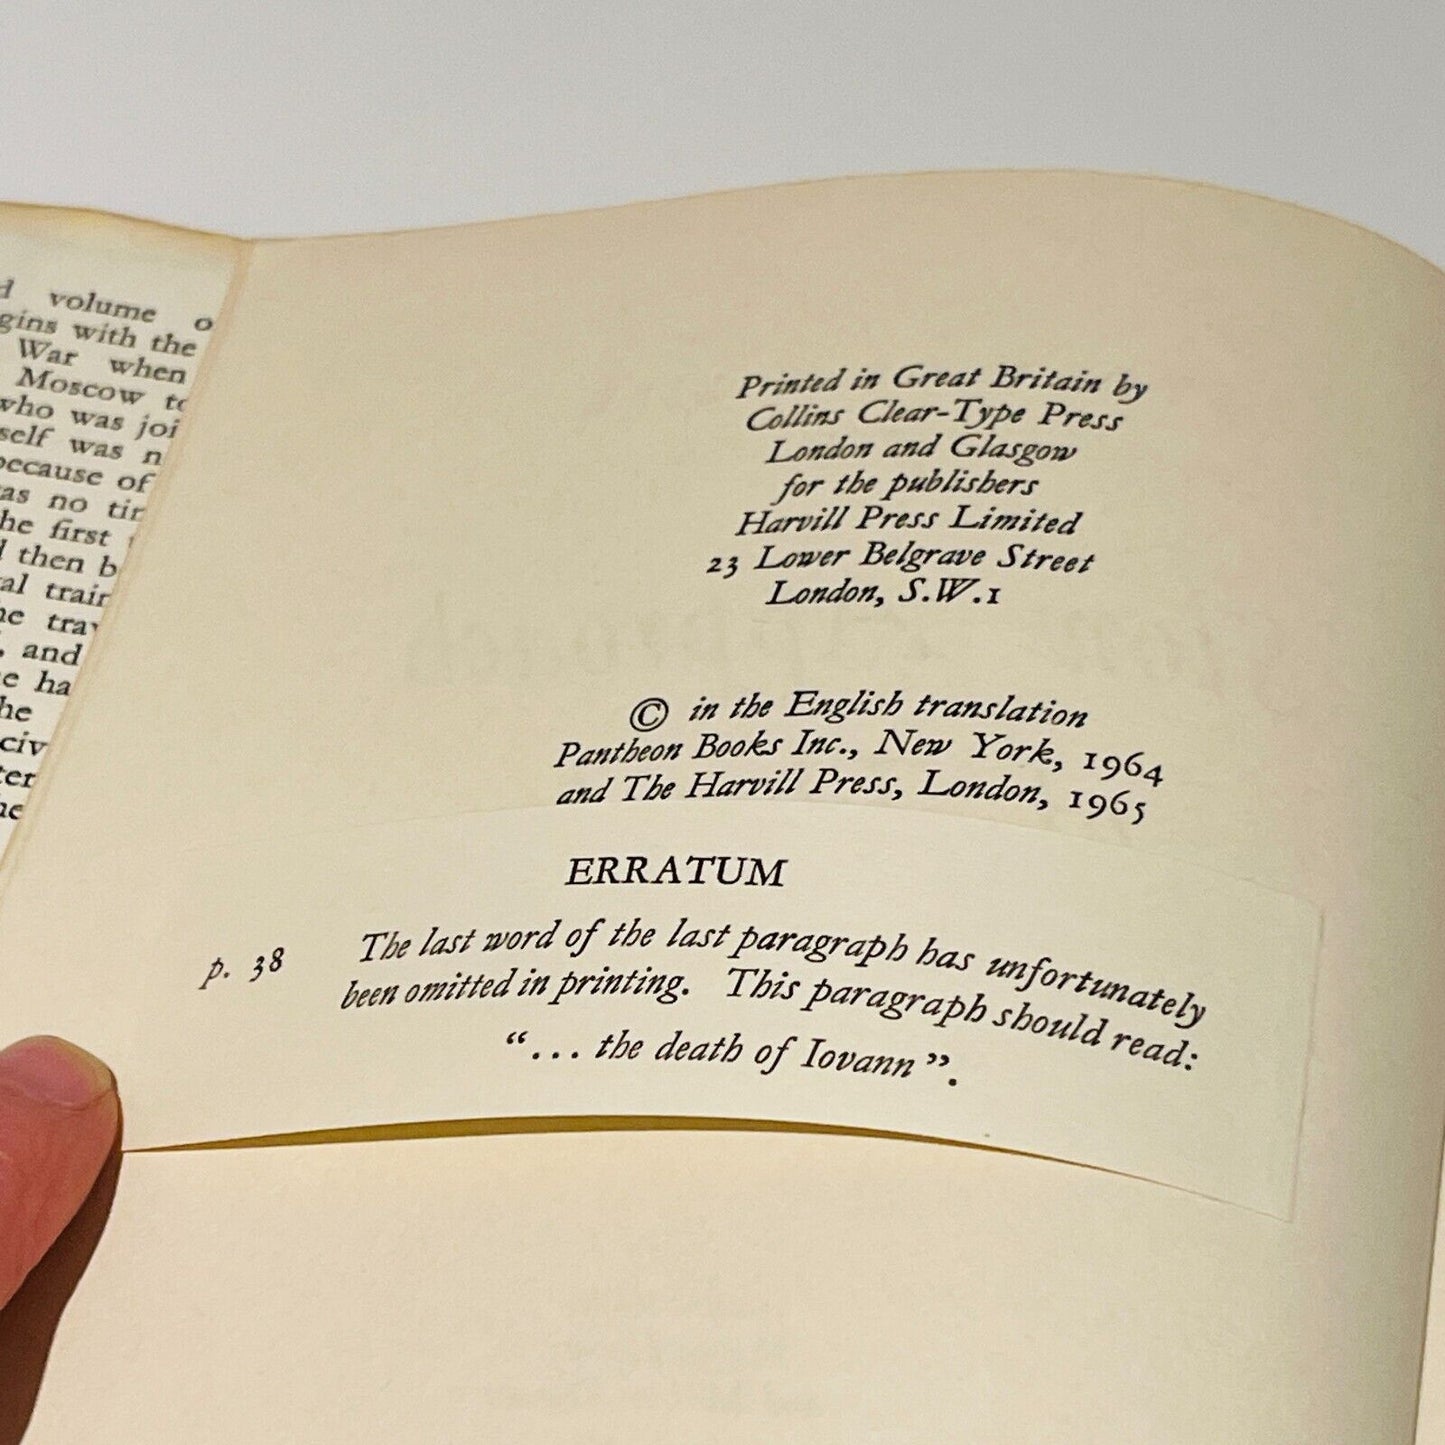 volume
gins with the
War when
Moscow
who was
self was
because of
no
the first
then
and
Printed in Great Britain by
Collins Clear-Type Press
London and Glasgow
for the publishers
Harvill Press Limited
23 Lower Belgrave Street
London, S.W.1
© in the English translation
Pantheon Books Inc., New York, 1964
and The Harvill Press, London, 1965
ERRATUM
p. 38 The last word of the last paragraph has unfortunately
been omitted in printing. This paragraph should read:
“... the death of Iovann”.